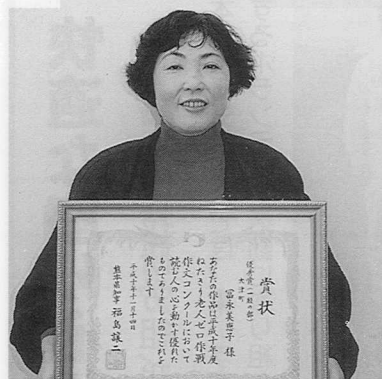 賞状
優秀賞(一般の部)
大津町
冨永美恵子 様
あなたの作品は平成十年度
ねたきり老人ゼロ作戦
作文コンクールにおいて
読む人の心を動かす優れた
ものでありましたのでこれを
賞します
平成十年十一月十四日
熊本県知事 福島譲二